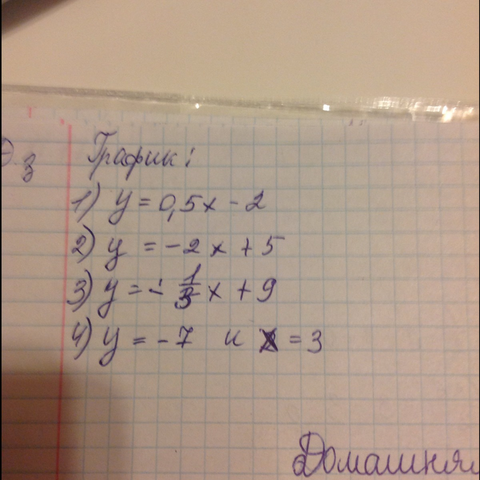 Д.з График:
1) y = 0,5x - 2
2) y = -2x + 5
3) y = - 1/3 x + 9
4) y = -7 и x = 3
Домашняя